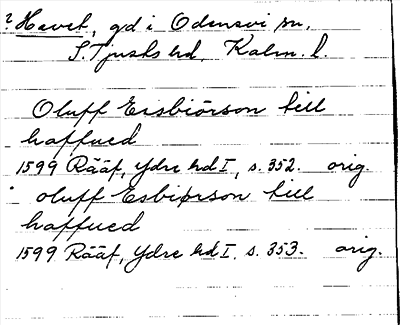 ? Havet, gd i Odensvi sn,
S. Tjusts hd, Kalm. l.
Oluff Essbiörson till
haffued
1599 Rääf, Ydre hd I, s. 352. orig.
oluff Esbiørson till
haffued
1599 Rääf, Ydre hd I, s. 353. orig.